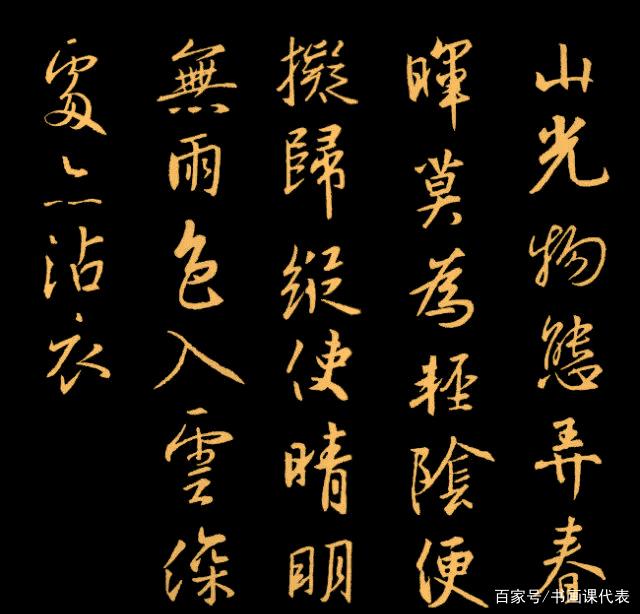 山光物態弄春
暉莫為輕陰便
擬歸縱使晴明
無雨色入雲深
處亦沾衣
百家号/书画课代表